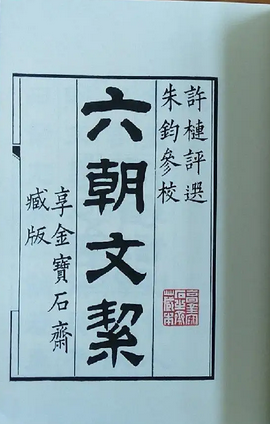 許槤評選
朱鈞參校
六朝文絜
享金寶石齋
藏版